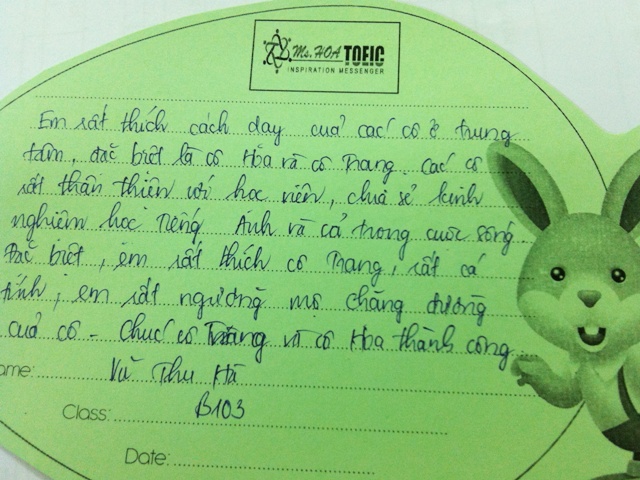 Ms. HOA TOEIC
INSPIRATION MESSENGER
Em rất thích cách dạy của các cô ở trung
tâm, đặc biệt là cô Hoa và cô Trang. Các cô
rất thân thiện với học viên, chia sẻ kinh
nghiệm học Tiếng Anh và cả trong cuộc sống.
Đặc biệt, em rất thích cô Trang, rất cá
tính, em rất ngưỡng mộ chặng đường
của cô - Chúc cô Trang và cô Hoa thành công
ame: Vũ Thu Hà
Class: B103
Date: